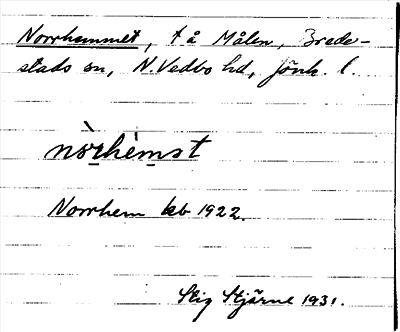 Norrhemmet, t å Målen, Brede-
stads sn, N. Vedbo hd, Jönk. l.
nòrhèmst
Norrhem kb 1922.
Stig Stjärne 1931.